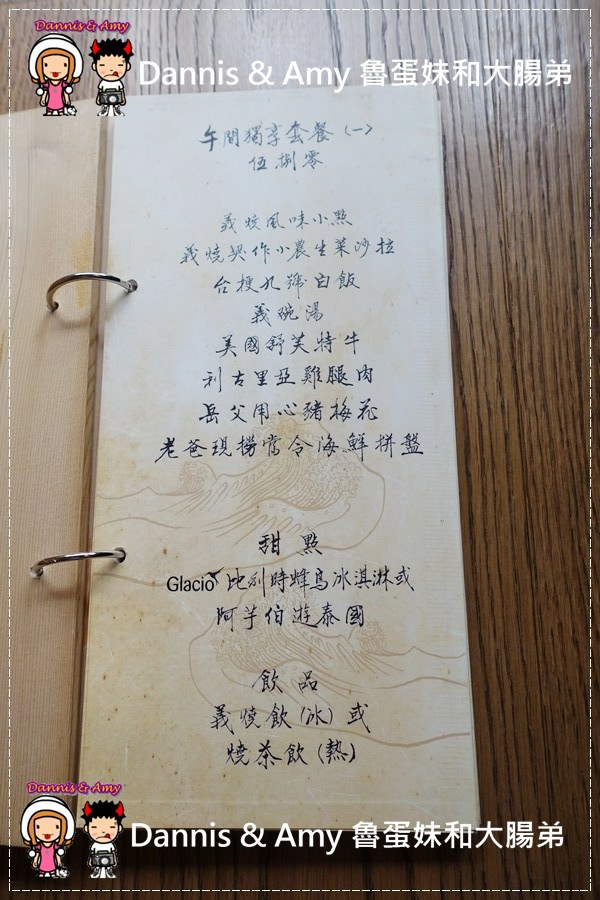 Dannis & Amy
Dannis & Amy 魯蛋妹和大腸弟
午間獨享套餐〈一〉
伍捌零
義燒風味小點
義燒契作小農生菜沙拉
台梗九號白飯
義碗湯
美國舒芙特牛
利古里亞雞腿肉
岳父用心豬梅花
老爸現撈當令海鮮拼盤
甜點
Glacio 比利時蜂鳥冰淇淋或
阿芋伯遊泰國
飲品
義燒飲(冰)或
燒茶飲(熱)
Dannis & Amy
Dannis & Amy 魯蛋妹和大腸弟